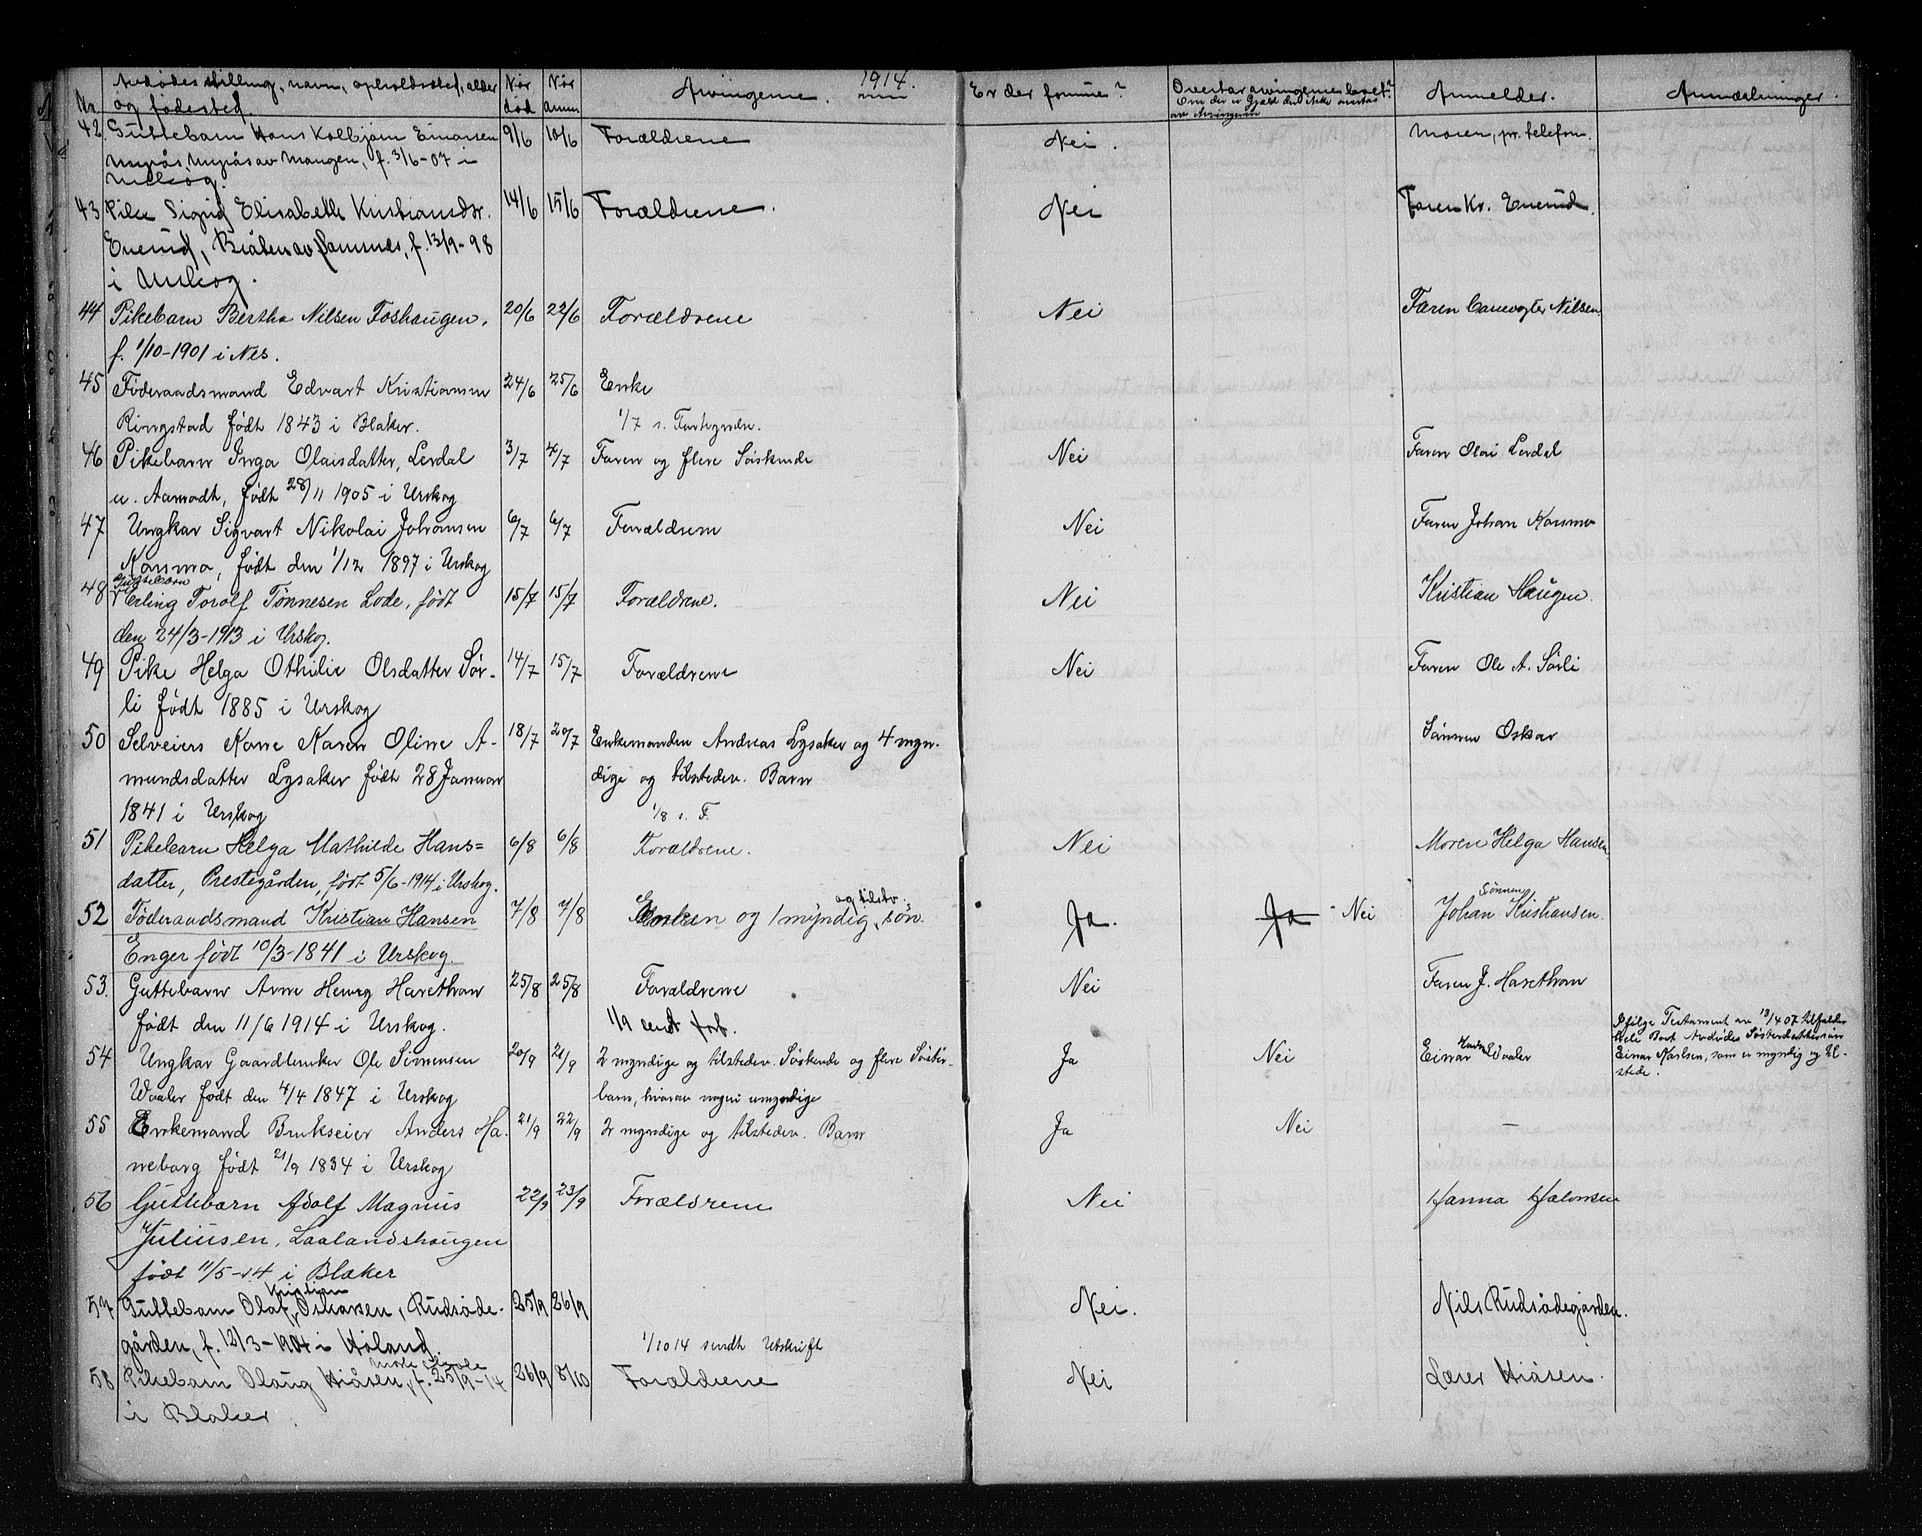 1914.
Nr. Avdødes stilling, navn, opholdssted, alder og fødested. Når død Når anm. Arvingerne. Er der formue? Overtar arvingerne boet? Anmelder. Anmerkninger.
Om der er Gjæld den ikke overtas av Arvingerne
42. Guttebarn Hans Kolbjørn Einarsen 9/6 10/6 Forældrene Nei. Moren, pr. telefon.
av Mangen, f. 3/6-07 i
Urskog.
43 Pike Sigrid Elisabeth Kristiansdtr. 14/6 15/6 Forældrene. Nei Faren Kr. Enerud.
Enerud, Bråten av f. 13/9-98
i Urskog.
44 Pikebarn Bertha Nilsen Foshaugen, 20/6 22/6 Forældrene Nei Faren Banevogter Nilsen.
f. 1/10-1901 i Nes.
45 Føderaadsmand Edvart Kristiansen 24/6 25/6 Enke
Ringstad født 1843 i Blaker. 1/7 s.
46 Pikebarn Inga Olaisdatter, Lerdal 3/7 4/7 Faren og flere Søskende Nei Faren Olai Lerdal
u. Aamodt, født 28/11 1905 i Urskog
47 Ungkar Sigvart Nikolai Johansen 6/7 6/7 Forældrene Nei Faren Johan Kasmo
Kasmo, født den 1/12 1897 i Urskog
48 Guttebarn Erling Torolf Tønnesen Lode, født 15/7 15/7 Forældrene. Nei Kristian Haugen.
den 24/3-1913 i Urskog.
49 Pike Helga Othilie Olsdatter Sør- 14/7 15/7 Forældrene Nei Faren Ole A. Sørli
li født 1885 i Urskog
50 Selveiers Kone Karen Oline A- 18/7 20/7 Enkemanden Andreas Lysaker og 4 myn- Sønnen Oskar
mundsdatter Lysaker født 28 Januar dige og tilstedev. Barn
1841 i Urskog 1/8 s. F.
51 Pikebarn Helga Mathilde Hans= 6/8 6/8 Forældrene. Nei Moren Helga Hansen.
datter, Prestegården, født 5/6-1914 i Urskog.
52 Føderaadsmand Kristian Hansen 7/8 7/8 Enken og 1 myndig og tilstv. søn. Ja. Ja - Nei Sønnen Johan Kristiansen.
Enger født 10/3-1841 i Urskog.
53. Guttebarn Arne Henry Harethon 25/8 25/8 Forældrene Nei Faren J. Harethon
født den 11/6 1914 i Urskog. 1/9 sendt fort.
54 Ungkar Gaardbruker Ole Simensen 20/9 21/9 2 myndige og tilstedev. Søskende og flere Søsker- Ja Nei Einar Waaler Ifølge Testament av 13/4 07 tilfalder
Waaler født den 4/4 1847 i Urskog barn, hvorav nogen umyndige hele Boet Avdødes Søsterdattersøn
Einar Karlsen, som er myndig og til-
stede.
55 Enkemand Brukseier Anders Ha- 21/9 22/9 2 myndige og tilstedev. Barn Ja Nei –
neborg født 21/9 1834 i Urskog
56 Guttebarn Adolf Magnus 22/9 23/9 Forældrene Nei Hanna Halvorsen
Juliussen, Laalandshaugen
født 11/5-14 i Blaker
57 Guttebarn Olaf Kristian Oskarsen, Rudsøde- 25/9 26/9 Nei. Nils Rudsødegården.
gården, f. 12/3-1904 i Høland. 1/10 14 sendt Utskrift
58 Pikebarn Olaug Hiåsen, f. 25/9-14 26/9 8/10 Forældrene Nei Lærer Hiåsen.
i Blaker.